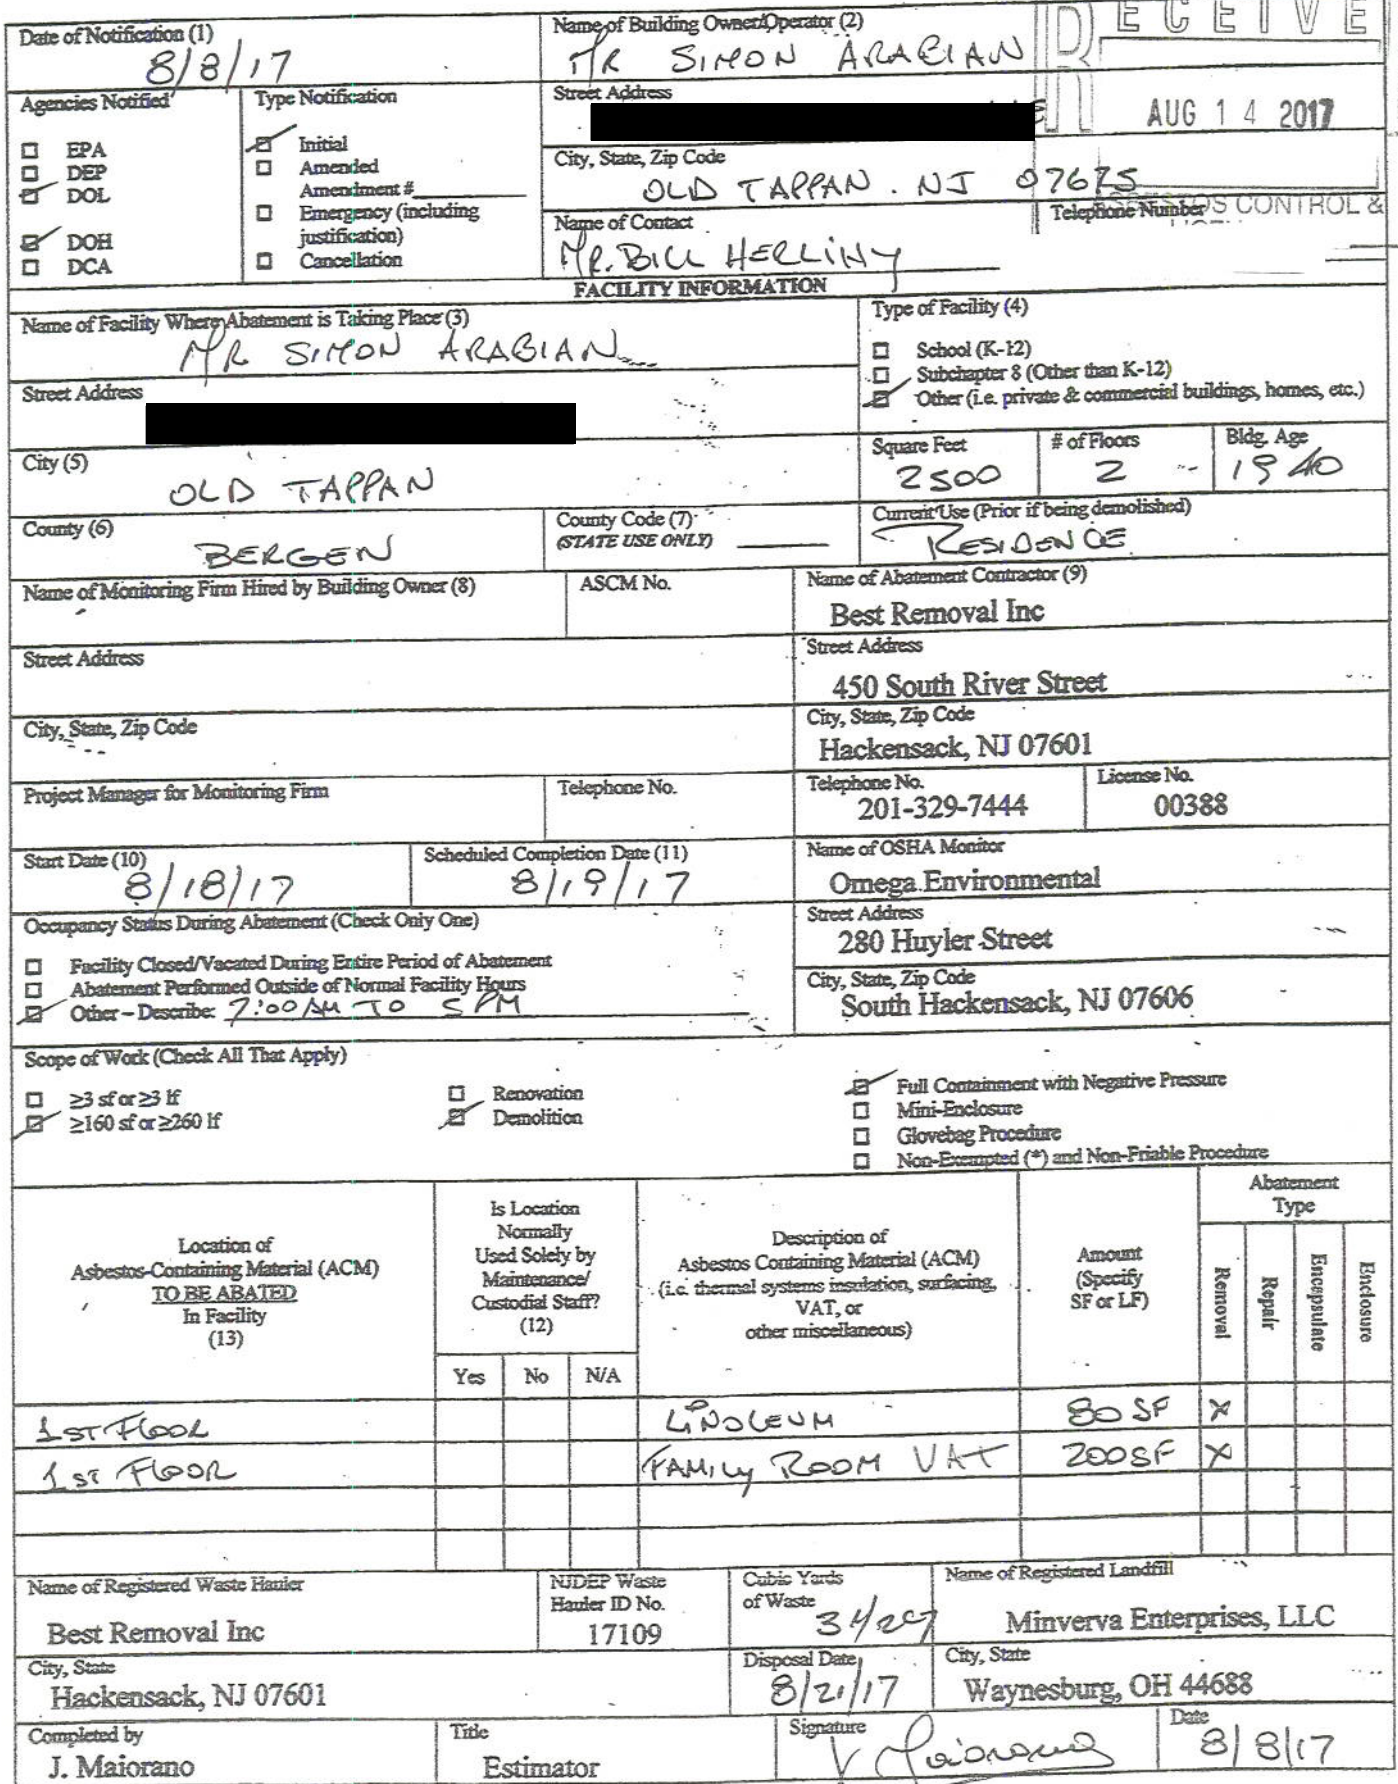 RECEIVE
AUG 14 2017
ASBESTOS CONTROL &
Date of Notification (1)
8/8/17
Name of Building Owner/Operator (2)
MR SIMON ARABIAN
Agencies Notified
EPA
DEP
DOL
DOH
DCA
Type Notification
Initial
Amended
Amendment #
Emergency (including
justification)
Cancellation
Street Address
City, State, Zip Code
OLD TAPPAN. NJ 07675
Name of Contact
MR. BILL HERLINY
Telephone Number
FACILITY INFORMATION
Name of Facility Where Abatement is Taking Place (3)
MR SIMON ARABIAN
Type of Facility (4)
School (K-12)
Subchapter 8 (Other than K-12)
Other (i.e. private & commercial buildings, homes, etc.)
Street Address
City (5)
OLD TAPPAN
Square Feet
2500
# of Floors
2
Bldg. Age
1940
County (6)
BERGEN
County Code (7)
(STATE USE ONLY)
Current Use (Prior if being demolished)
RESIDENCE
Name of Monitoring Firm Hired by Building Owner (8)
ASCM No.
Name of Abatement Contractor (9)
Best Removal Inc
Street Address
Street Address
450 South River Street
City, State, Zip Code
City, State, Zip Code
Hackensack, NJ 07601
Project Manager for Monitoring Firm
Telephone No.
Telephone No.
201-329-7444
License No.
00388
Start Date (10)
8/18/17
Scheduled Completion Date (11)
8/19/17
Name of OSHA Monitor
Omega Environmental
Occupancy Status During Abatement (Check Only One)
Facility Closed/Vacated During Entire Period of Abatement
Abatement Performed Outside of Normal Facility Hours
Other – Describe: 7:00 AM TO 5 PM
Street Address
280 Huyler Street
City, State, Zip Code
South Hackensack, NJ 07606
Scope of Work (Check All That Apply)
≥3 sf or ≥3 lf
≥160 sf or ≥260 lf
Renovation
Demolition
Full Containment with Negative Pressure
Mini-Enclosure
Glovebag Procedure
Non-Exempted (*) and Non-Friable Procedure
Location of
Asbestos-Containing Material (ACM)
TO BE ABATED
In Facility
(13)
Is Location
Normally
Used Solely by
Maintenance/
Custodial Staff?
(12)
Yes No N/A
Description of
Asbestos Containing Material (ACM)
(i.e. thermal systems insulation, surfacing,
VAT, or
other miscellaneous)
Amount
(Specify
SF or LF)
Abatement
Type
Removal
Repair
Encapsulate
Enclosure
1ST FLOOR LINOLEUM 80 SF X
1ST FLOOR FAMILY ROOM VAT 200SF X
Name of Registered Waste Hauler
Best Removal Inc
NJDEP Waste
Hauler ID No.
17109
Cubic Yards
of Waste
Name of Registered Landfill
Minverva Enterprises, LLC
City, State
Hackensack, NJ 07601
Disposal Date
8/21/17
City, State
Waynesburg, OH 44688
Completed by
J. Maiorano
Title
Estimator
Signature
Date
8/8/17